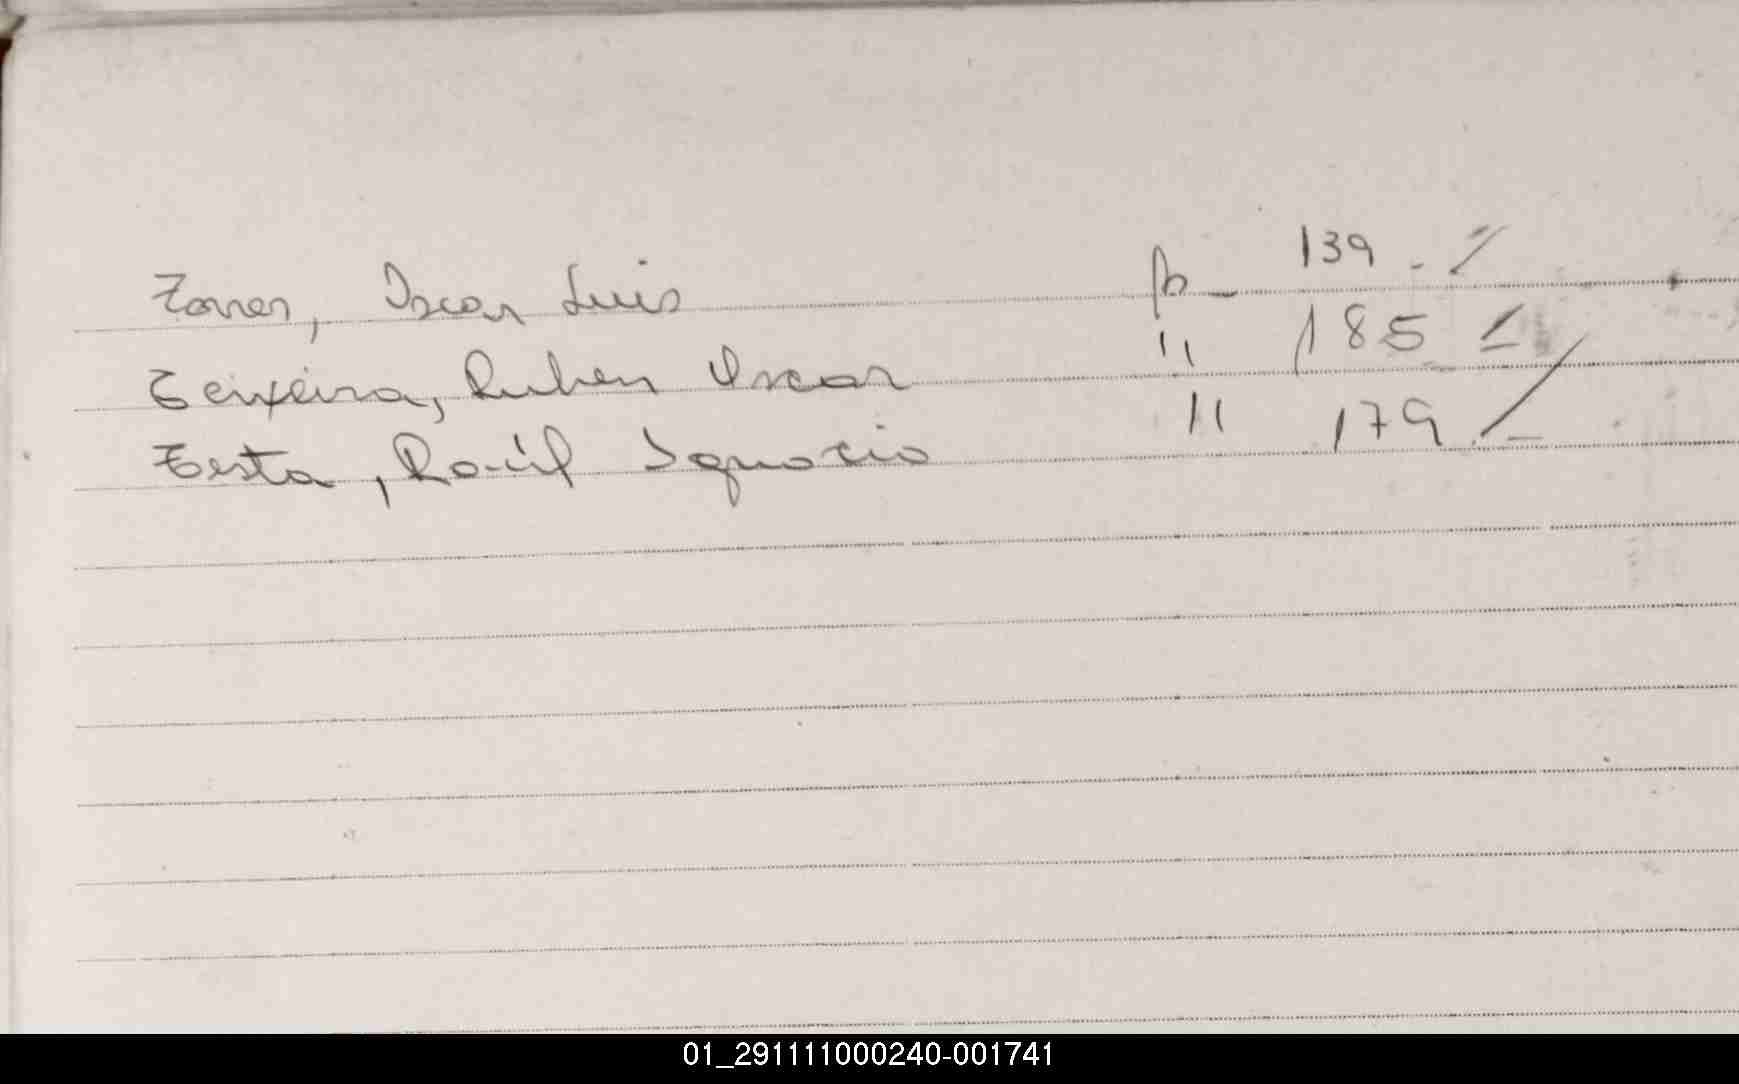 Torres, Oscar Luis p- 139.-/
Teixeira, Ruben Oscar " 185 /
Testa, Raúl Ignacio " 179./
01_291111000240-001741